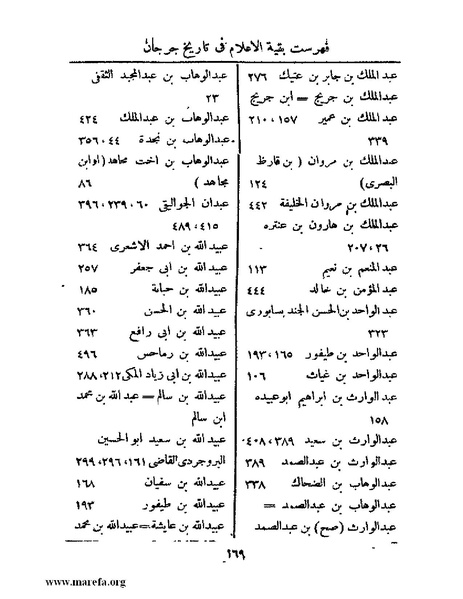 فهرست بقية الاعلام فى تاريخ جرجان
عبد الملك بن جابر بن عتيك ٢٧٦
عبدالملك بن جريج = ابن جريج
عبدالملك بن عمير ١٥٧، ٢١٠،
٣٣٩
عبدالملك بن مروان (بن قارظ
البصرى) ١٢٤
عبدالملك بن مروان الخليفة ٤٤٢
عبدالملك بن هارون بن عنتره
٢٦، ٢٠٧
عبد المنعم بن نعيم ١١٣
عبد المؤمن بن خالد ٤٤٤
عبد الواحد بن الحسن الجند يسابورى
٣٢٣
عبدالواحد بن طيفور ١٦٥، ١٩٣
عبدالواحد بن غياث ١٠٦
عبد الوارث بن ابراهيم ابوعبيده
١٥٨
عبدالوارث بن سعيد ٣٨٩، ٤٠٨
عبدالوارث بن عبدالصمد ٣٨٩
عبدالوهاب بن الضحاك ٣٣٨
عبدالوهاب بن عبدالصمد =
عبدالوارث (صح) بن عبدالصمد
عبدالوهاب بن عبدالمجيد الثقفى
٢٣
عبدالوهاب بن عبدالملك ٤٢٤
عبدالوهاب بن نجدة ٤٤، ٣٥٦
عبدالوهاب بن اخت مجاهد (اوابن
مجاهد) ٨٦
عبدان الجواليقى ٦٠، ٢٣٩، ٣٩٦
٤١٥، ٤٨٩
عبيدالله بن احمد الاشعرى ٣٦٤
عبيدالله بن ابى جعفر ٢٥٧
عبيدالله بن حبابة ١٨٥
عبيدالله بن الحسن ٣٦٠
عبيدالله بن ابى رافع ٣٦٣
عبيدالله بن رماحس ٤٩٦
عبيدالله بن ابى زياد المكى ٢١٢، ٢٨٨
عبيدالله بن سالم = عبدالله بن محمد
ابن سالم
عبيدالله بن سعيد ابو الحسين
البروجردى القاضى ١٦١، ٢٩٦، ٢٩٩
عبيدالله بن سفيان ١٦٨
عبيدالله بن طيفور ١٩٣
عبيدالله بن عايشة = عبيدالله بن محمد
١٦٩
www.marefa.org